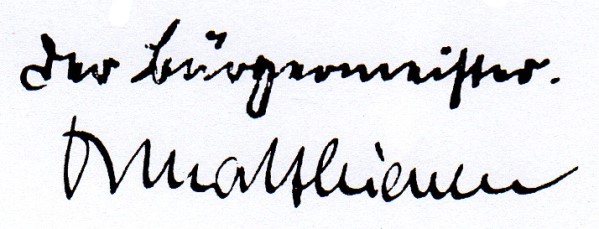 Der Bürgermeister.
Dr Matthiessen